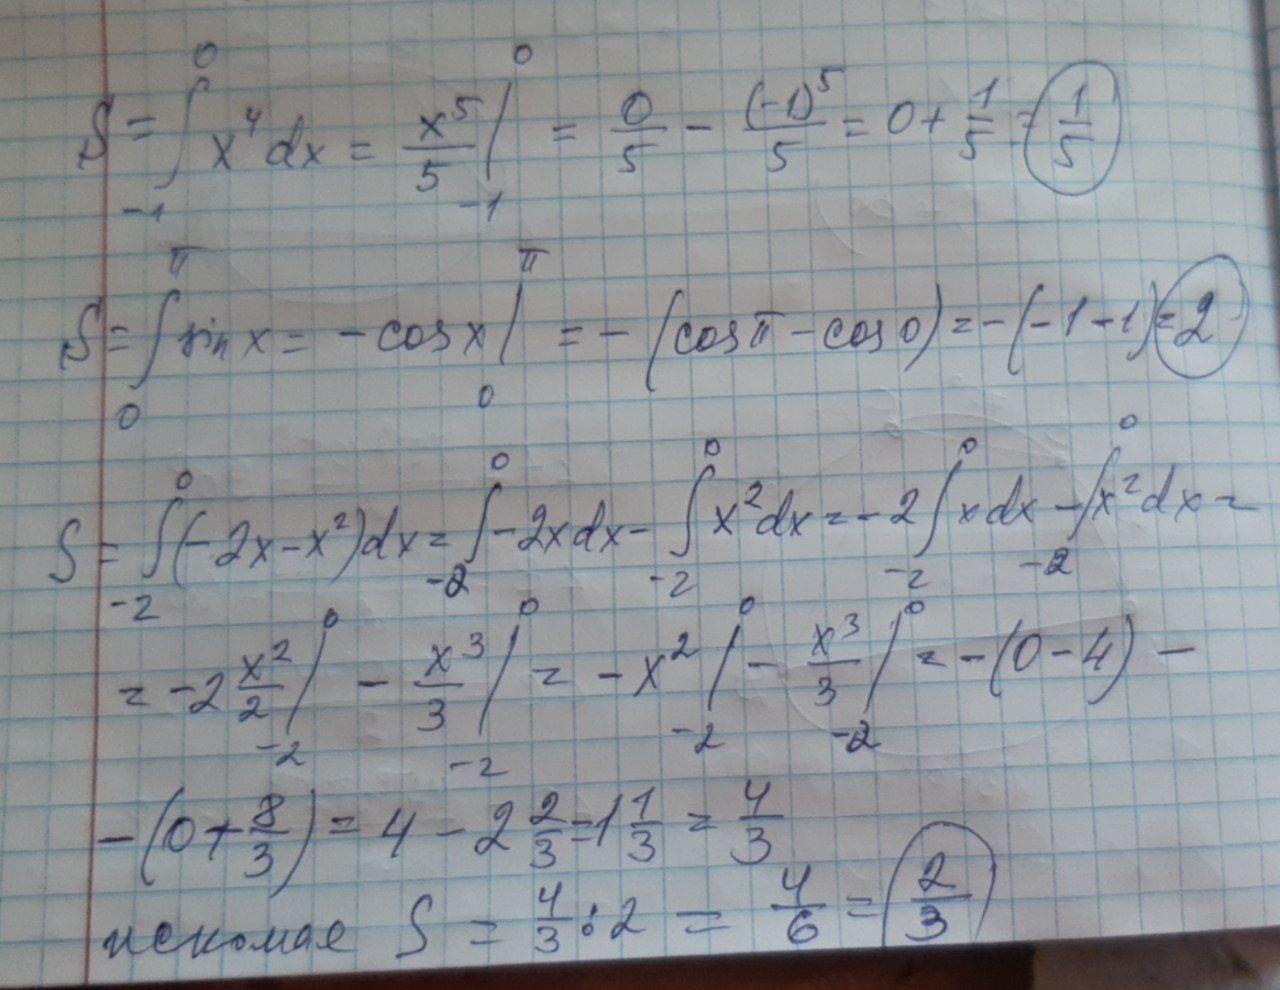 S = ∫₋₁⁰ x⁴dx = x⁵/5 |₋₁⁰ = 0/5 − (−1)⁵/5 = 0 + 1/5 = 1/5
S = ∫₀^π sin x = −cos x |₀^π = −(cos π − cos 0) = −(−1−1) = 2
S = ∫₋₂⁰ (−2x − x²)dx = ∫₋₂⁰ −2xdx − ∫₋₂⁰ x²dx = −2 ∫₋₂⁰ xdx − ∫₋₂⁰ x²dx =
= −2 x²/2 |₋₂⁰ − x³/3 |₋₂⁰ = −x² |₋₂⁰ − x³/3 |₋₂⁰ = −(0−4) −
−(0 + 8/3) = 4 − 2 2/3 = 1 1/3 = 4/3
искомая S = 4/3 : 2 = 4/6 = 2/3